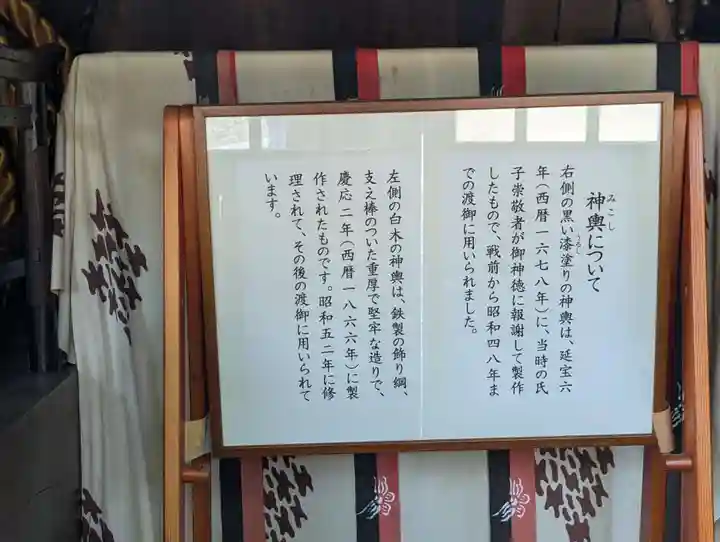 神輿について
みこし
右側の黒い漆塗りの神輿は、延宝六
うるし
年(西暦一六七八年)に、当時の氏
子崇敬者が御神徳に報謝して製作
したもので、戦前から昭和四八年ま
での渡御に用いられました。
左側の白木の神輿は、鉄製の飾り綱、
支え棒のついた重厚で堅牢な造りで、
慶応二年(西暦一八六六年)に製
作されたものです。昭和五二年に修
理されて、その後の渡御に用いられて
います。